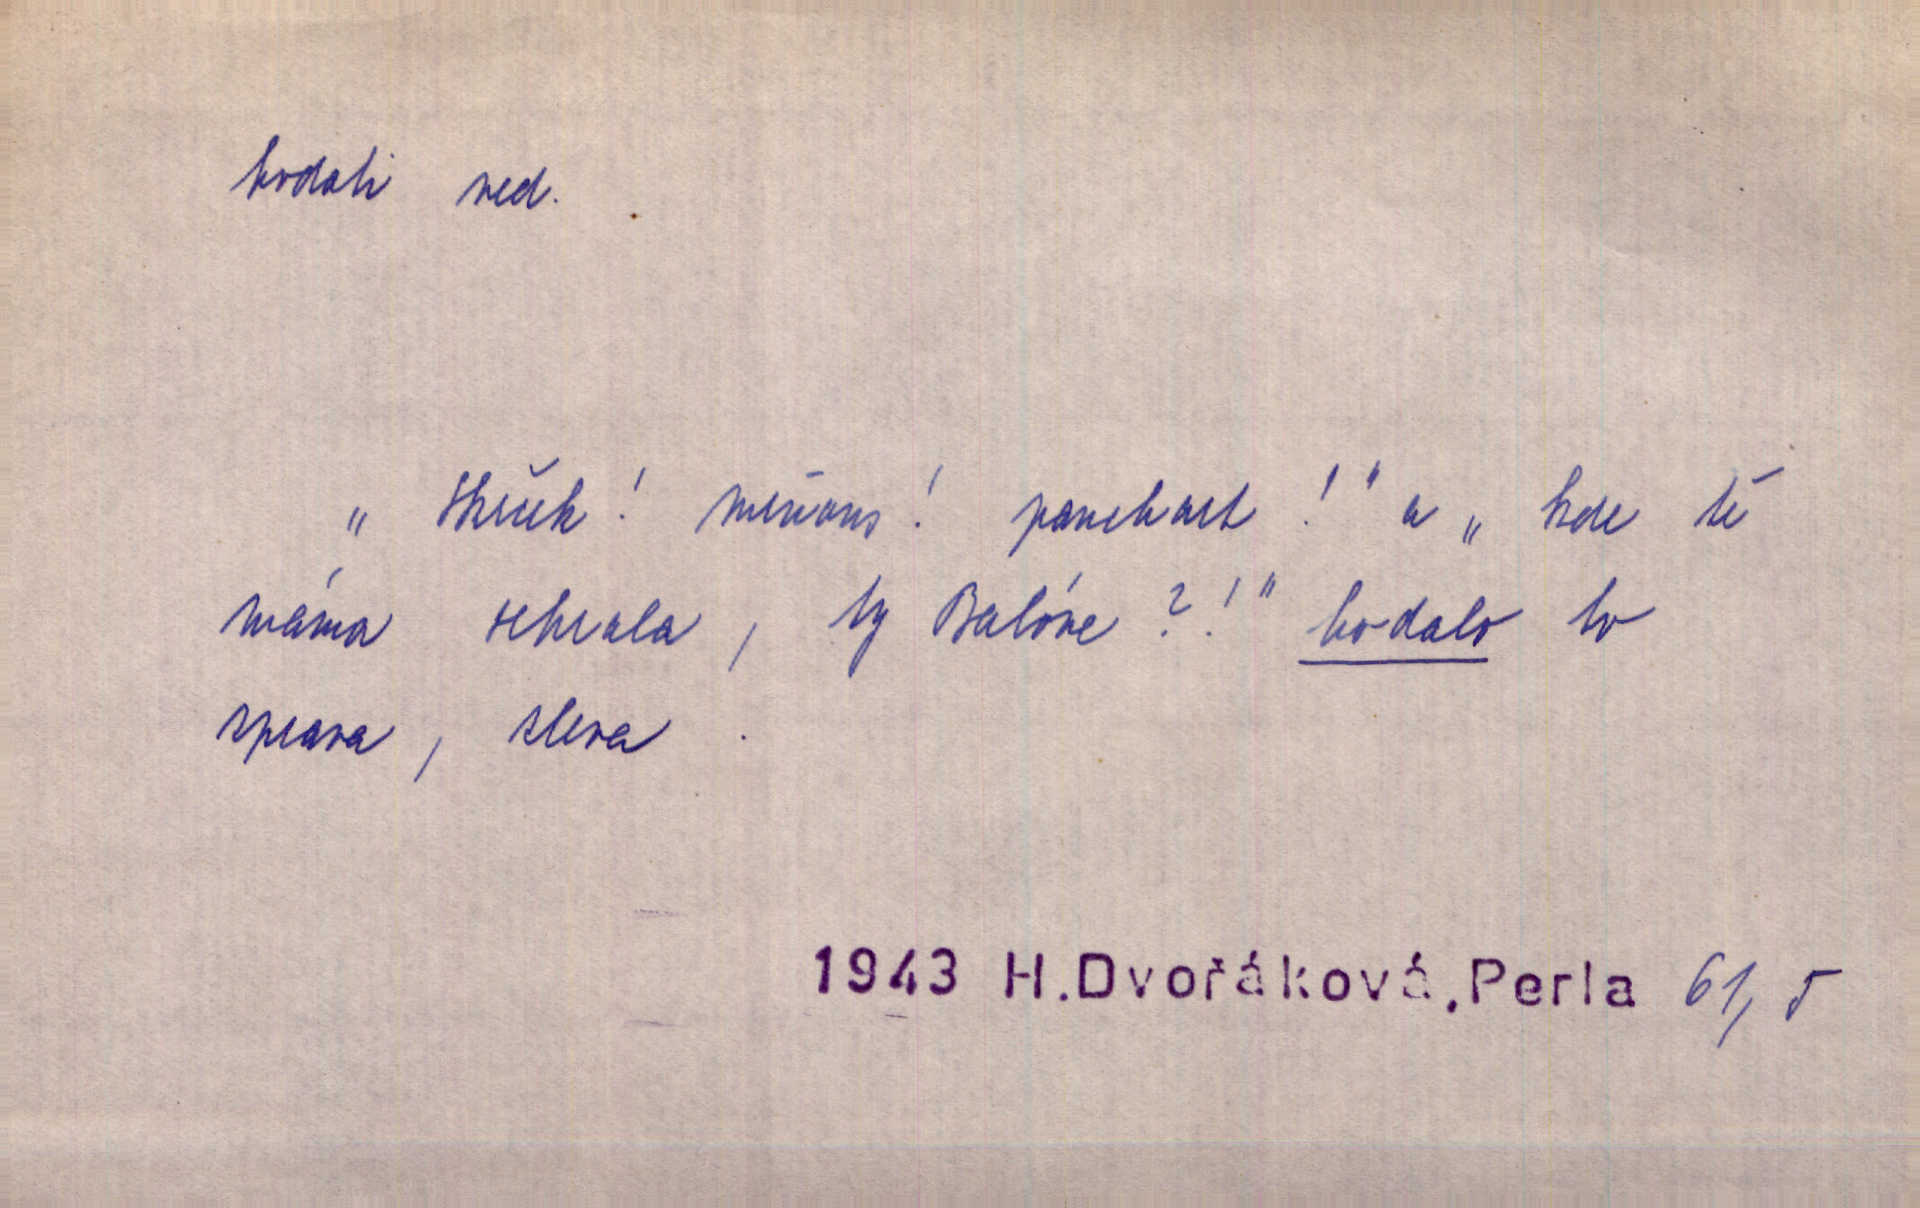 bodati ned.
„Skrček! miňous! panchart!" a „kde tě
máma sehrala, ty Balóne?!" bodalo to
zprava, zleva.
1943 H.Dvořáková,Perla 61, 5